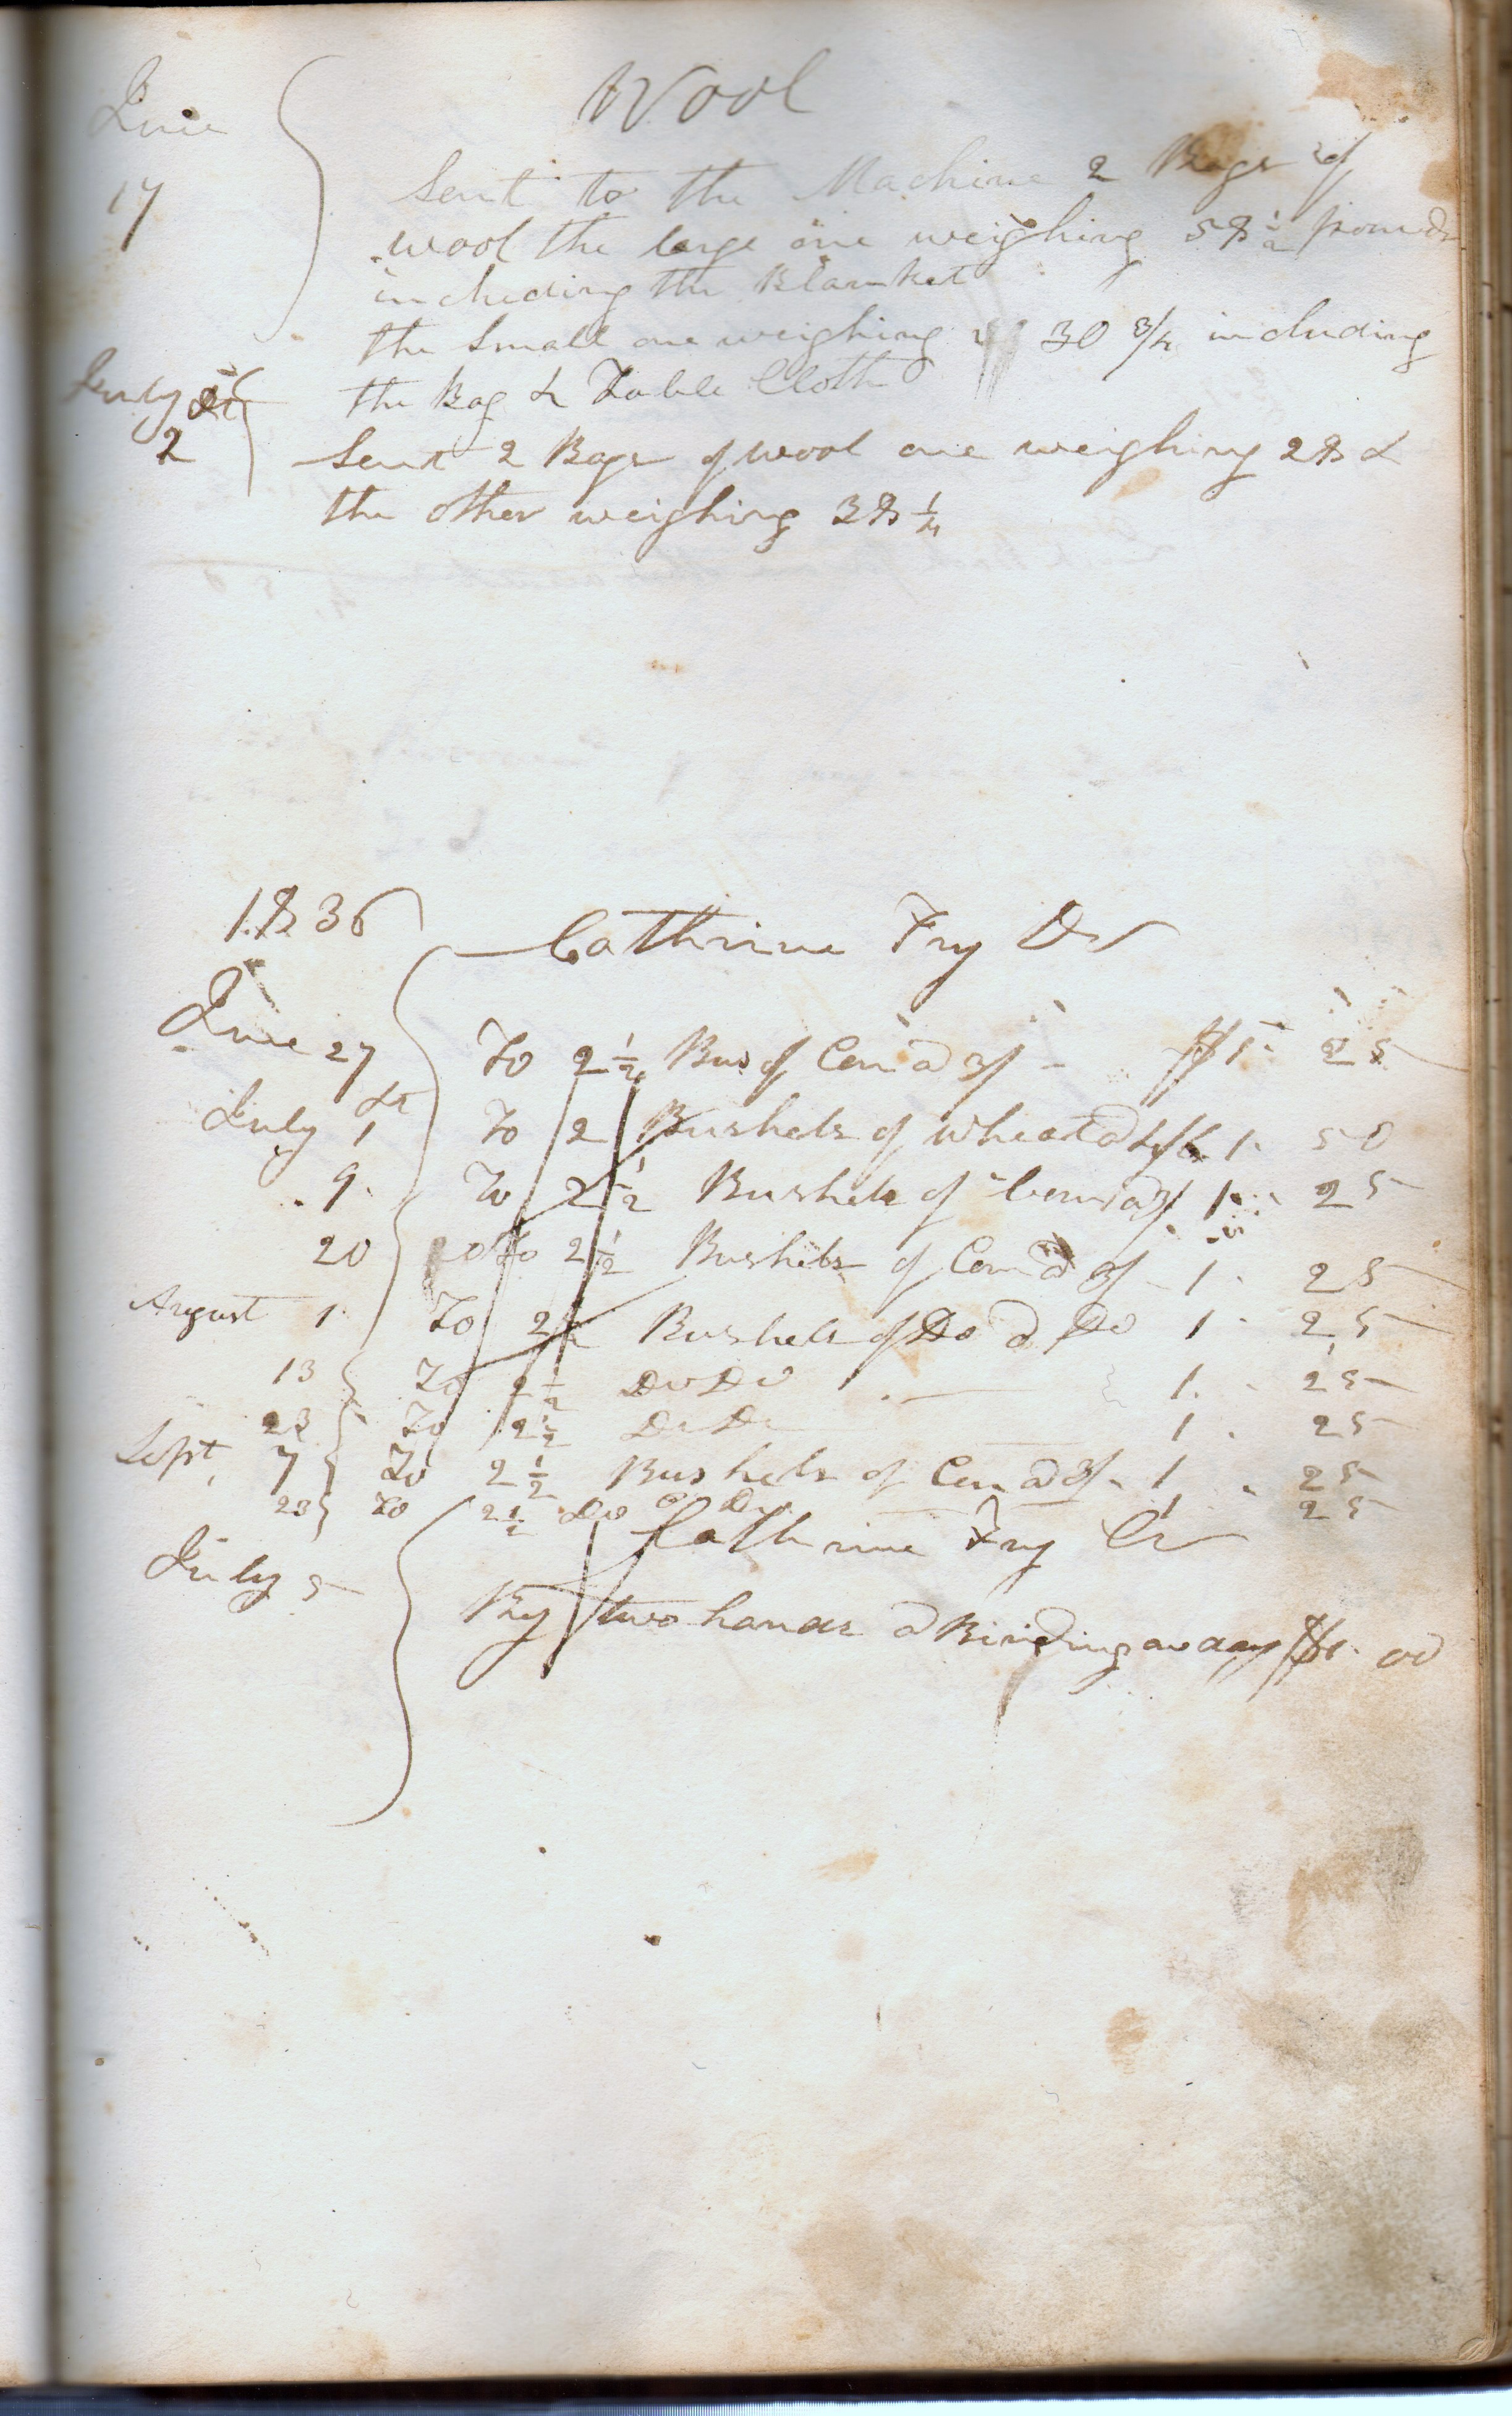 Wool
June
17
Sent to the Machine 2 Bags of
wool the large one weighing 58 1/2 pounds
including the Blanket
the Small one weighing 30 3/4 including
the Bag & Table Cloth
July
2
Sent 2 Bags of wool one weighing 28 &
the other weighing 38 1/4
1836
Cathrine Fry Dr
June 27 To 2 1/2 Bus of Corn a 3/ - $1. 25
July 1st To 2 Bushels of Wheat a 1. 50
9. To 2 1/2 Bushels of Corn a 3/ 1. 25
20 To 2 1/2 Bushels of Corn a 3/ - 1. 25
August 1. To 2 1/2 Bushels of Do a Do 1. 25
13 To 2 1/2 Do Do 1. 25
23 To 2 1/2 Do Do 1. 25
Sept 7 To 2 1/2 Bushels of Corn a 3/. 1. 25
23 To 2 1/2 Do Do 1 25
Cathrine Fry Cr
July 5 By two hands a Binding a day $1. 00